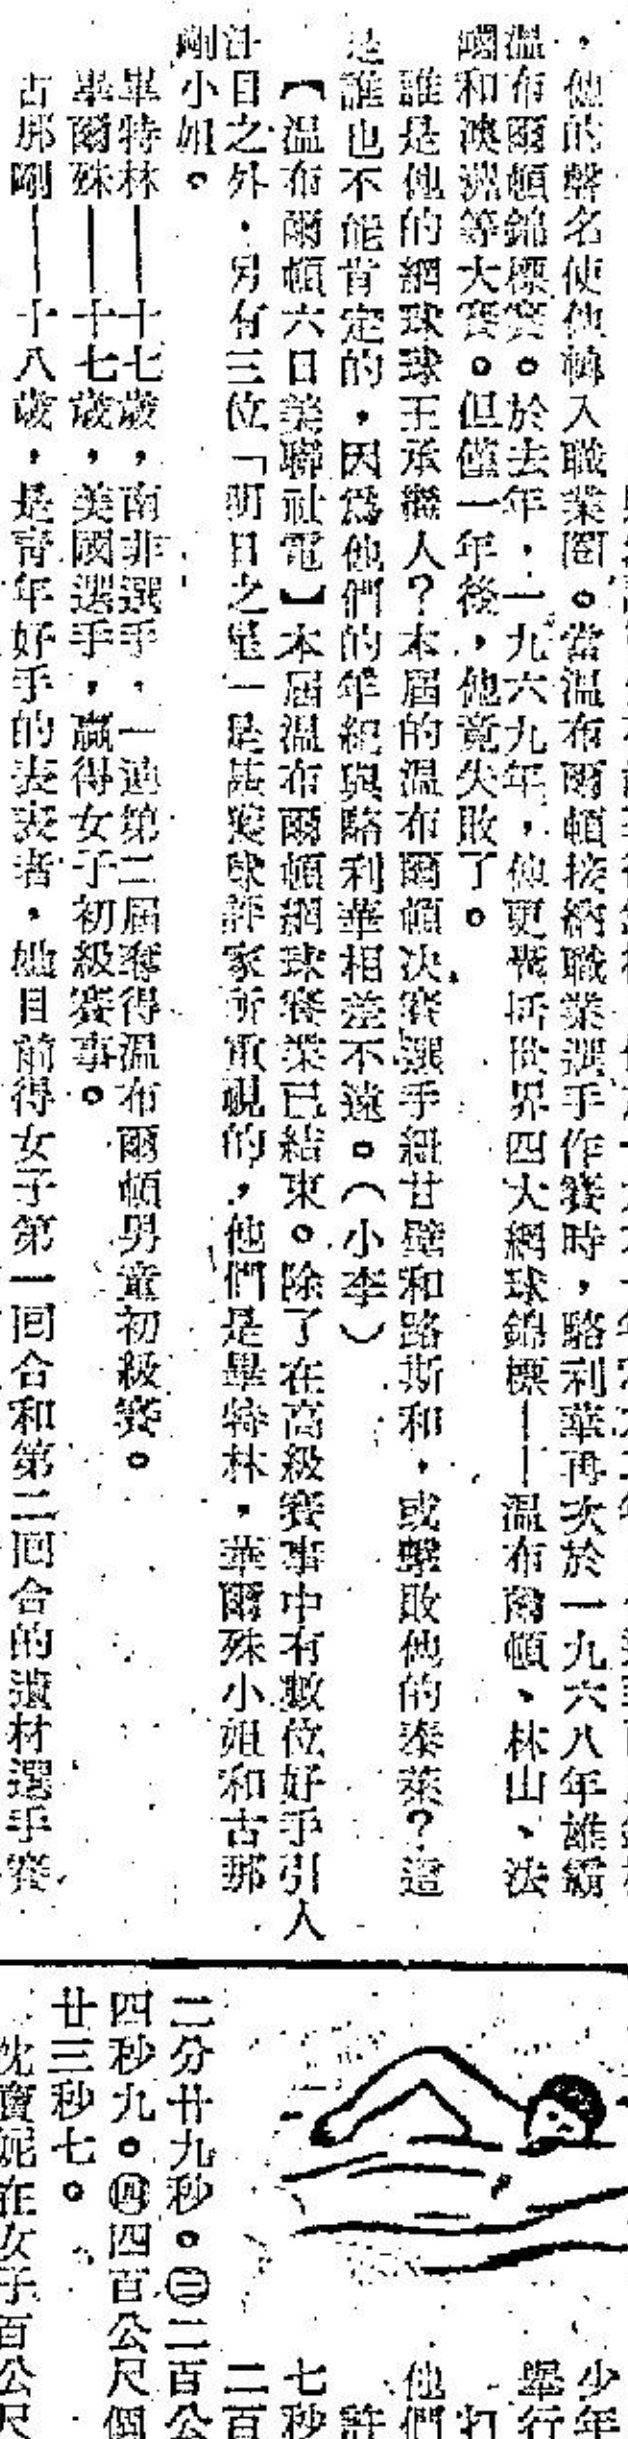 ，他的聲名使他轉入職業圈。當温布爾頓接納職業選手作賽時，略利華再次於一九六八年雄霸
温布爾頓錦標賽。於去年，一九六九年，他更囊括世界四大網球錦標——温布爾頓、林山、法
國和澳洲等大賽。但僅一年後，他竟失敗了。
誰是他的網球球王承繼人？本屆的温布爾頓決賽選手紐甘壁和路斯和，或擊敗他的泰萊？這
是誰也不能肯定的，因爲他們的年紀與略利華相差不遠。（小李）
【温布爾頓六日美聯社電】本屆温布爾頓網球賽業已結束。除了在高級賽事中有數位好手引人
注目之外，另有三位「明日之星」是甚獲球評家所重視的，他們是畢特林，華爾殊小姐和古那
剛小姐。
畢特林——十七歲，南非選手，一連第二屆奪得温布爾頓男童初級賽。
畢爾殊——十七歲，美國選手，贏得女子初級賽事。
古那剛——十八歲，是青年好手的表表者，她目前得女子第一回合和第二回合的遺材選手賽
少年
舉行
打
他們
許
七秒
二百
二分廿九秒。㊂二百公
四秒九。㊃四百公尺個
廿三秒七。
沈寶妮在女子百公尺